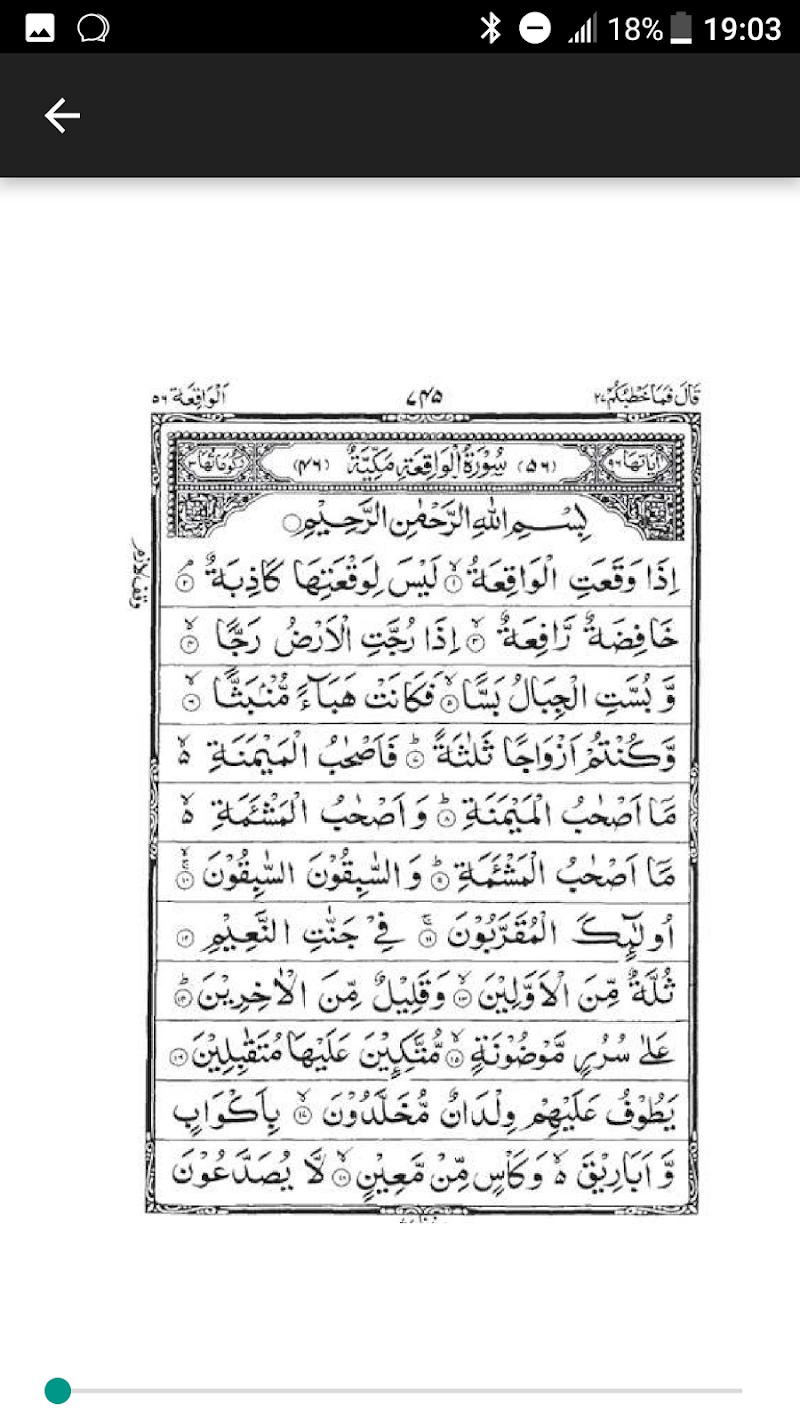 18% 19:03
قَالَ فَمَا خَطْبُكُمْ ٢٧ ٧٤٥ اَلْوَاقِعَة ٥٦
اٰيَاتُهَا ٩٦ (٥٦) سُوْرَةُ الْوَاقِعَةِ مَكِّيَّةٌ (٤٦) رُكُوْعَاتُهَا ٣
بِسْمِ اللهِ الرَّحْمٰنِ الرَّحِيْمِ
اِذَا وَقَعَتِ الْوَاقِعَةُ ۙ﴿١﴾ لَيْسَ لِوَقْعَتِهَا كَاذِبَةٌ ۘ﴿٢﴾
وقف لازم
خَافِضَةٌ رَّافِعَةٌ ۙ﴿٣﴾ اِذَا رُجَّتِ الْاَرْضُ رَجًّا ۙ﴿٤﴾
وَّ بُسَّتِ الْجِبَالُ بَسًّا ۙ﴿٥﴾ فَكَانَتْ هَبَآءً مُّنْۢبَثًّا ۙ﴿٦﴾
وَّكُنْتُمْ اَزْوَاجًا ثَلٰثَةً ؕ﴿٧﴾ فَاَصْحٰبُ الْمَيْمَنَةِ ۙ۬
مَاۤ اَصْحٰبُ الْمَيْمَنَةِ ؕ﴿٨﴾ وَ اَصْحٰبُ الْمَشْـَٔمَةِ ۙ۬
مَاۤ اَصْحٰبُ الْمَشْـَٔمَةِ ؕ﴿٩﴾ وَ السّٰبِقُوْنَ السّٰبِقُوْنَ ۚۙ﴿١٠﴾
اُولٰٓئِكَ الْمُقَرَّبُوْنَ ۚ﴿١١﴾ فِيْ جَنّٰتِ النَّعِيْمِ ﴿١٢﴾
ثُلَّةٌ مِّنَ الْاَوَّلِيْنَ ۙ﴿١٣﴾ وَقَلِيْلٌ مِّنَ الْاٰخِرِيْنَ ؕ﴿١٤﴾
عَلٰى سُرُرٍ مَّوْضُوْنَةٍ ۙ﴿١٥﴾ مُّتَّكِـِٕيْنَ عَلَيْهَا مُتَقٰبِلِيْنَ ﴿١٦﴾
يَطُوْفُ عَلَيْهِمْ وِلْدَانٌ مُّخَلَّدُوْنَ ۙ﴿١٧﴾ بِاَكْوَابٍ
وَّ اَبَارِيْقَ ۙ۬ وَكَاْسٍ مِّنْ مَّعِيْنٍ ۙ﴿١٨﴾ لَّا يُصَدَّعُوْنَ